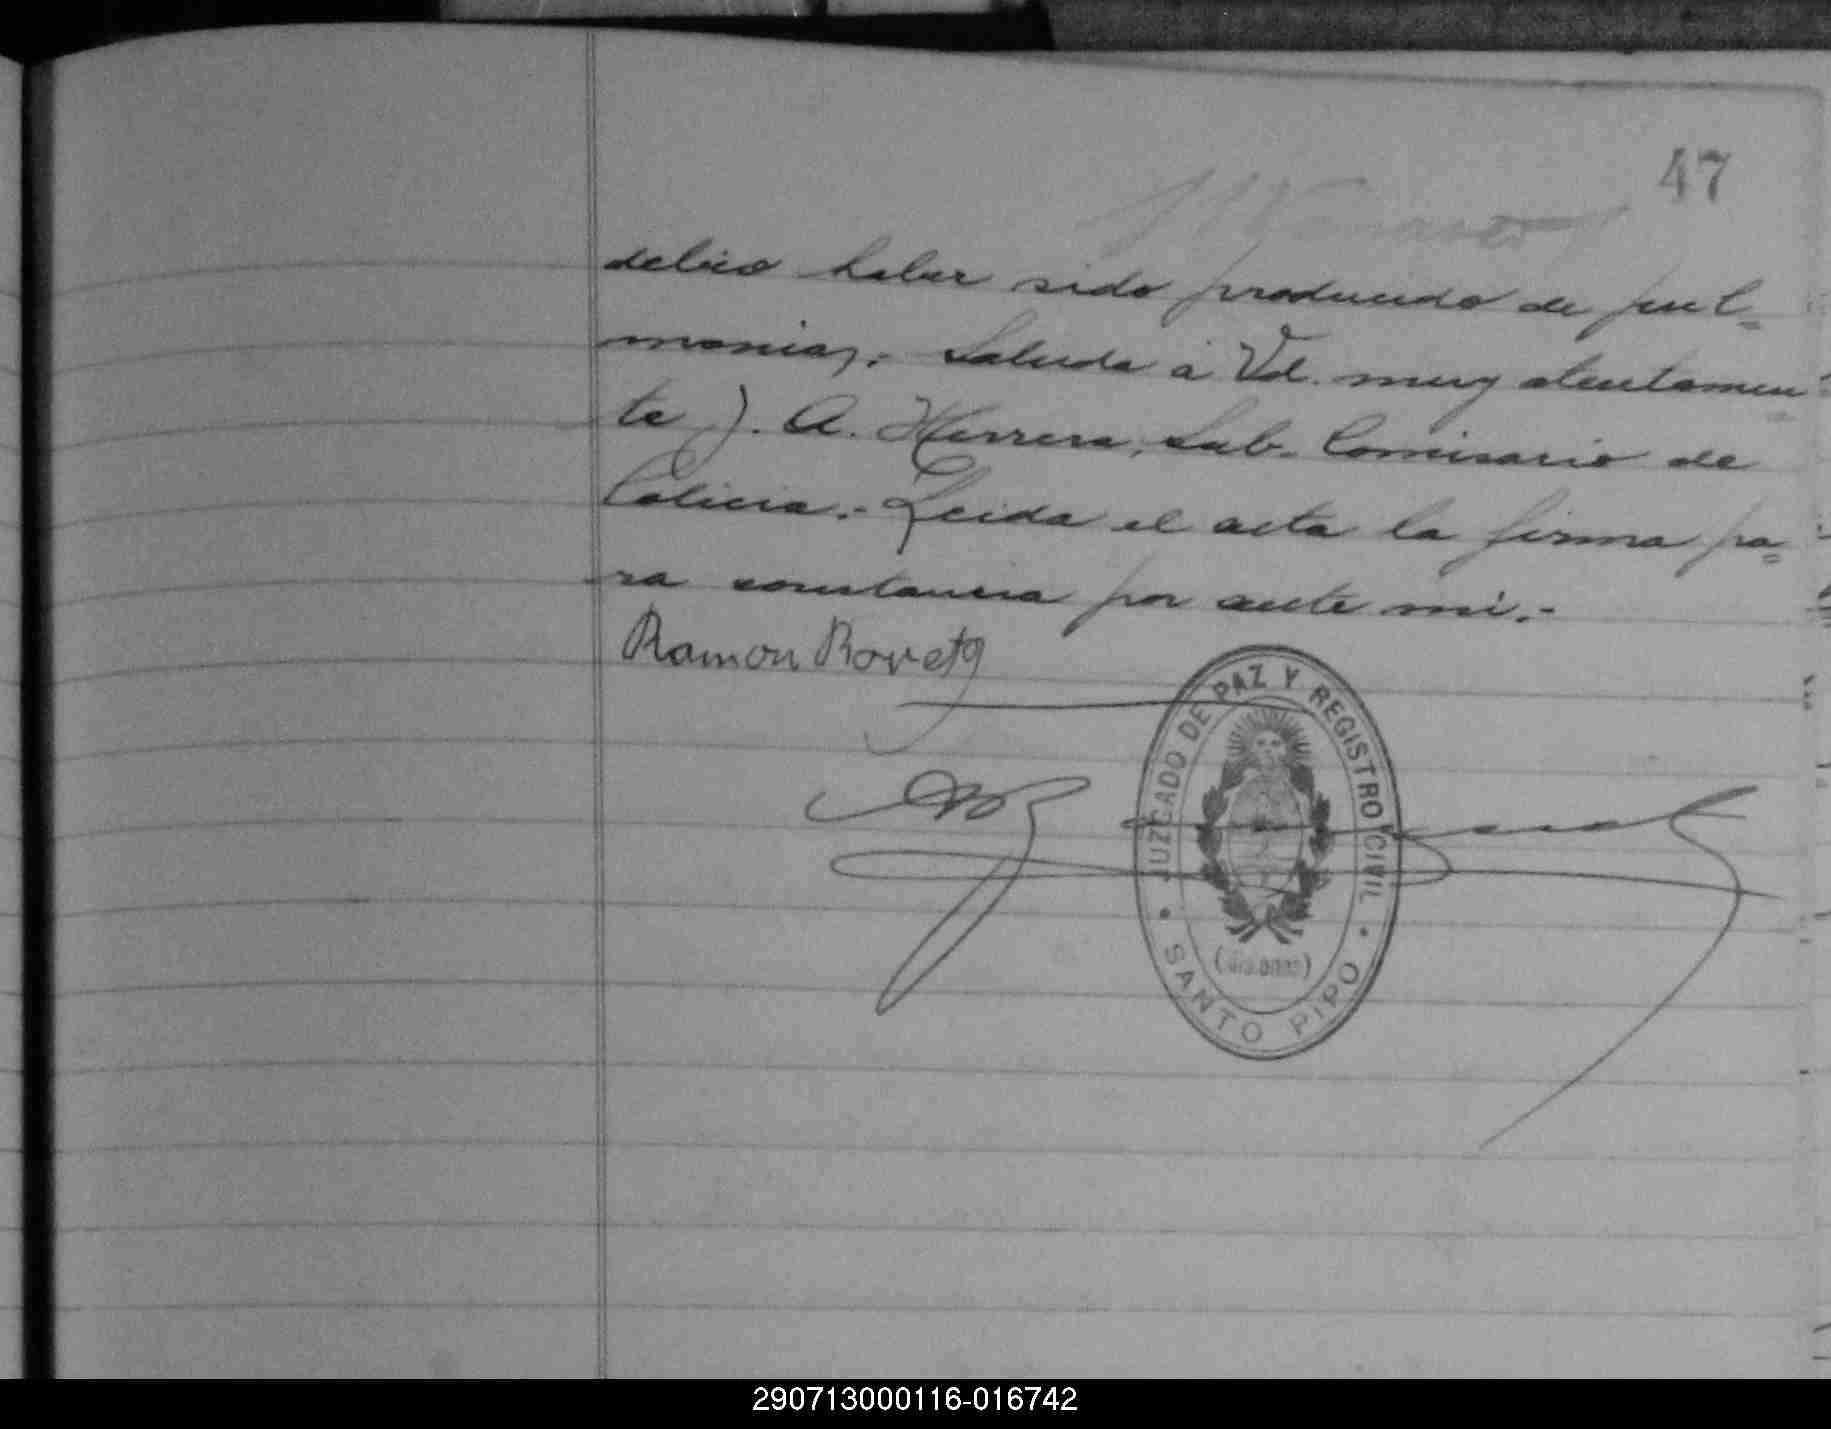 47
debido haber sido producido de pul-
monia,. Saluda á Vd. muy atentamen-
te J. A. Herrera, Sub. Comisario de
Policia.- Leida el acta la firma pa-
ra constancia por ante mi.-
Ramon Roveta
JUZGADO DE PAZ Y REGISTRO CIVIL
(Misiones)
SANTO PIPO
290713000116-016742